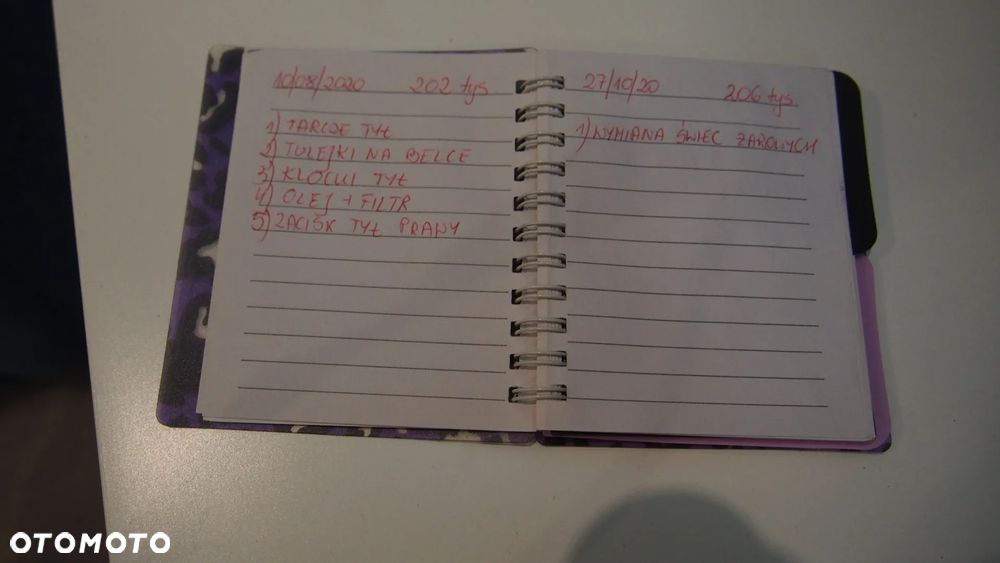 10/08/2020 202 tys
1) TARCZE TYŁ
2) TULEJKI NA BELCE
3) KLOCKI TYŁ
4) OLEJ + FILTR
5) ZACISK TYŁ PRAWY
27/10/20 206 tys
1) WYMIANA ŚWIEC ŻAROWYCH
OTOMOTO